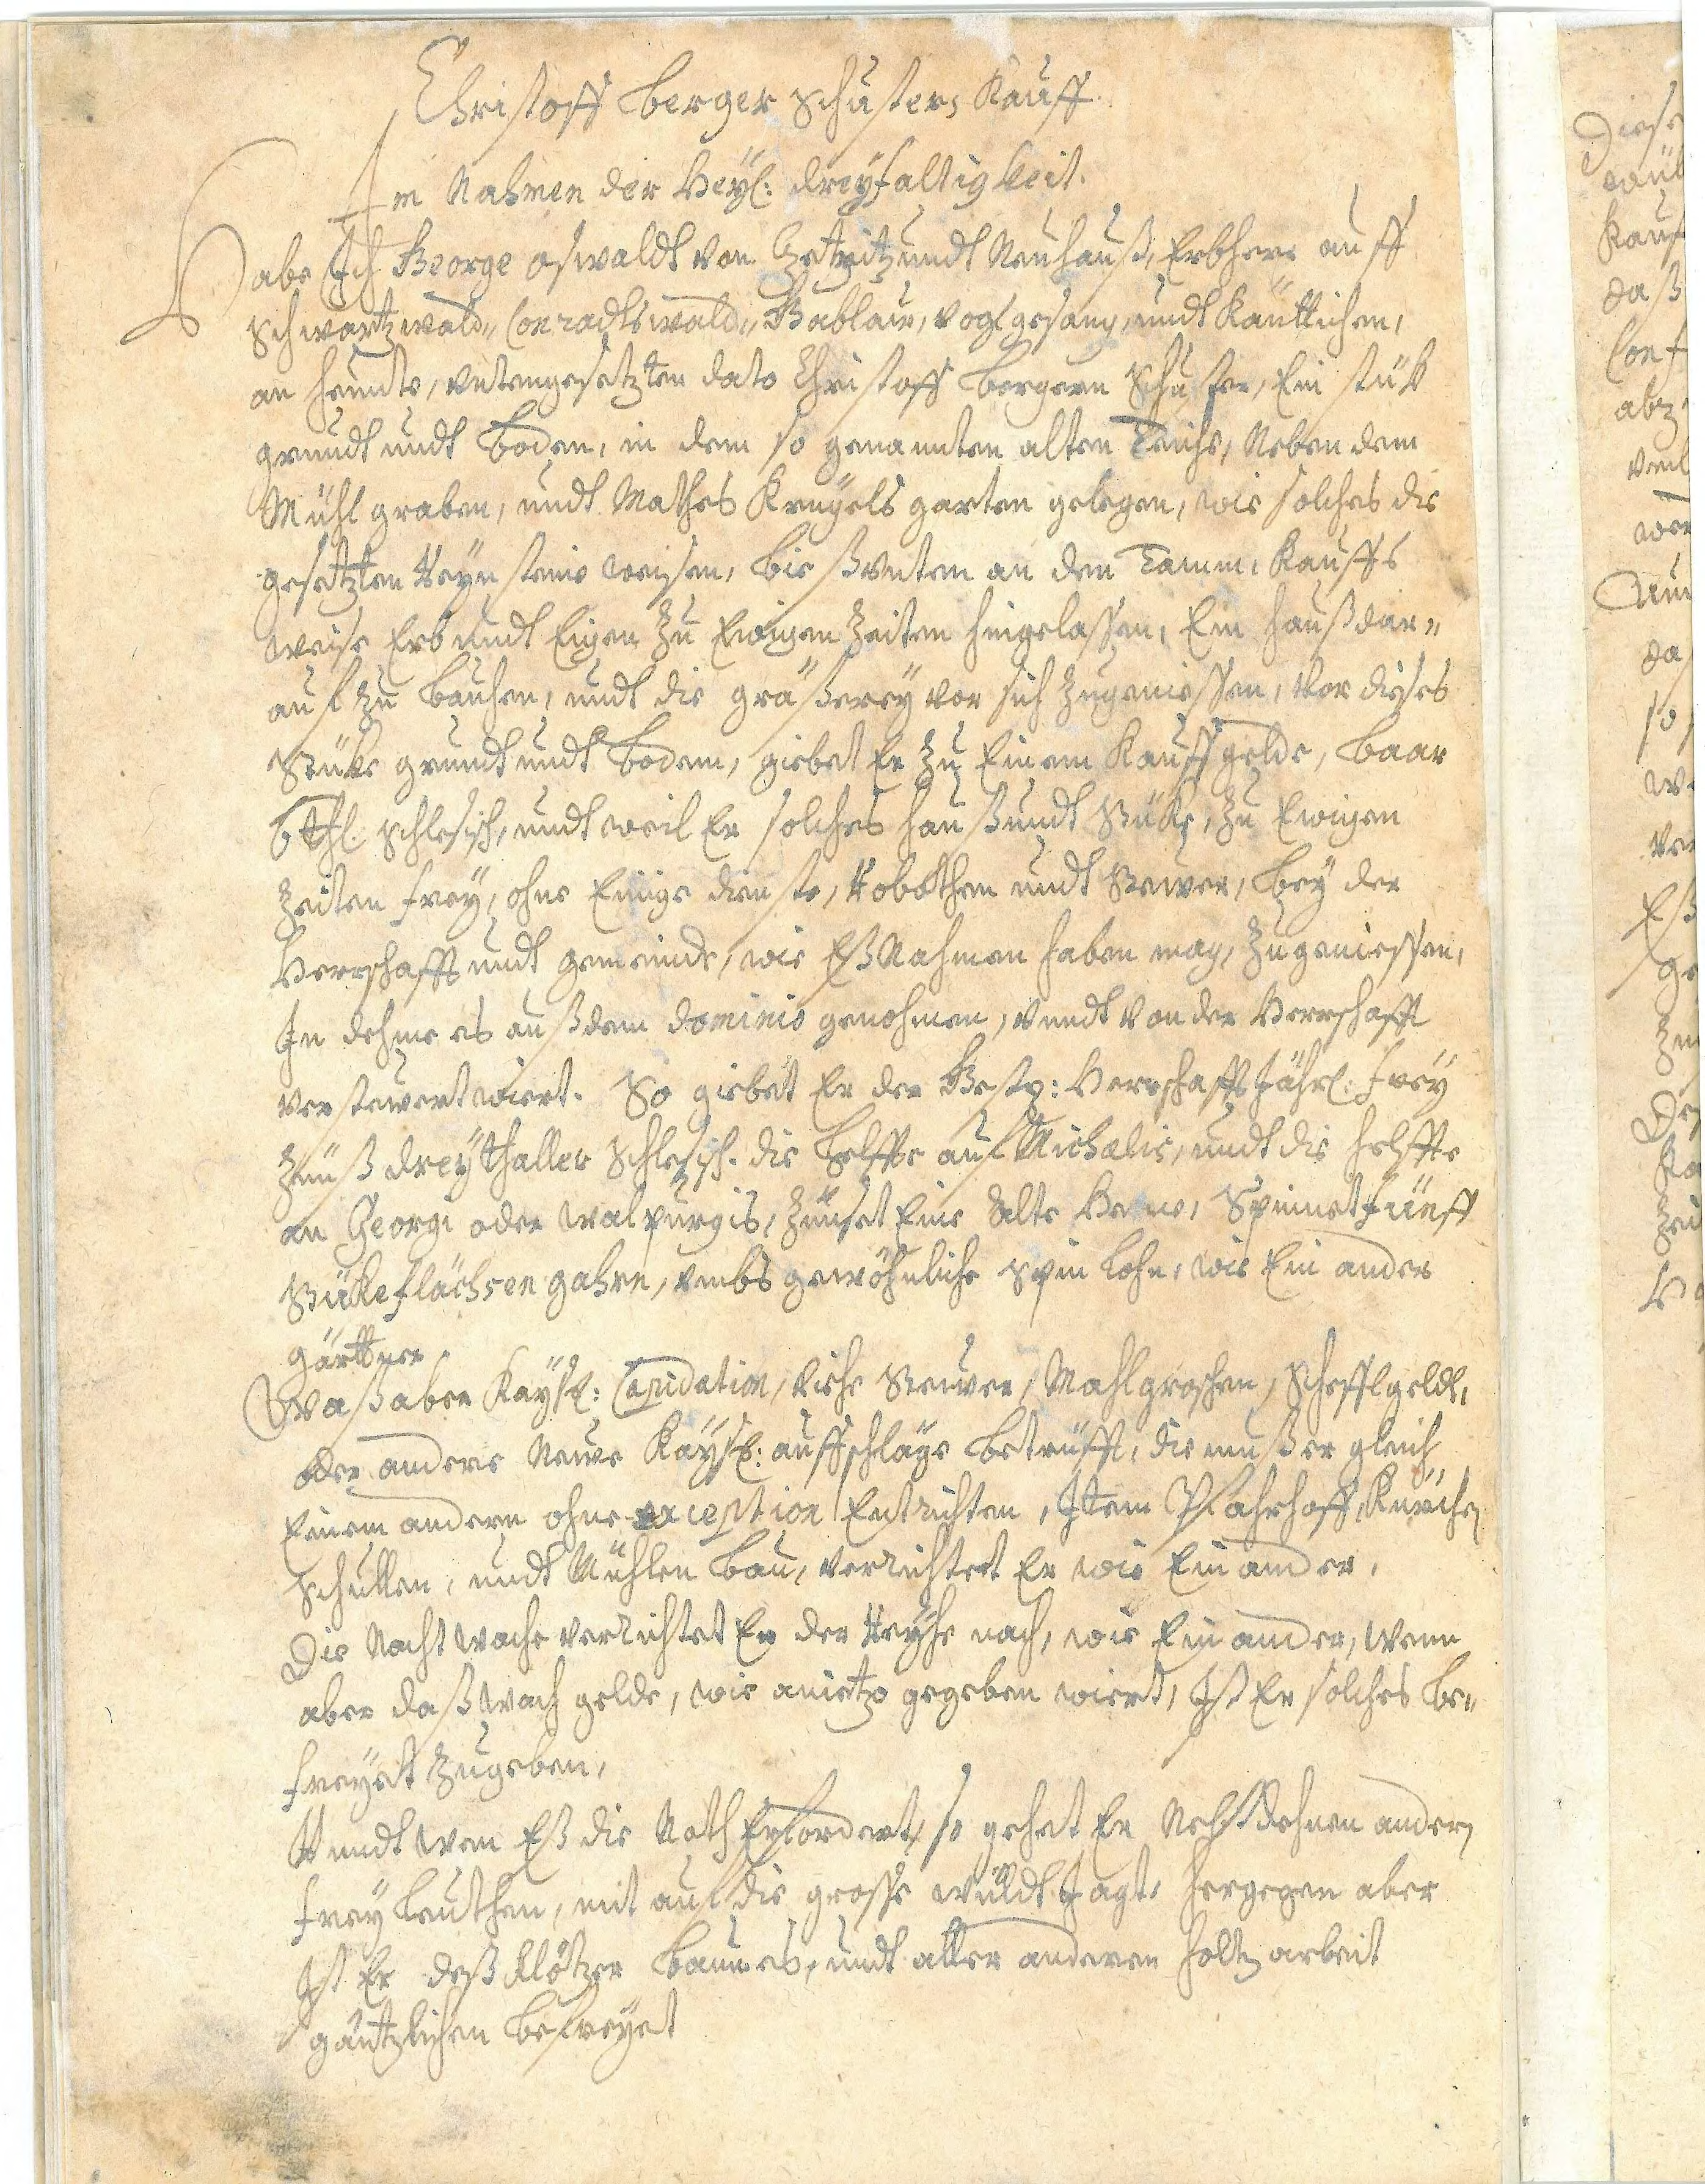 Christoff Berger Schusters Kauff
Im Nahmen der Heyl: dreyfaltigkeit.
Habe Ich George Oswaldt von Tzetritz undt Neuhauß, Erbherr auff
Schwartzwald„ Conradtswald„ Gablau, Vogelgesang, undt Käuttichen,
an heunte, untengesetzten dato Christoff Bergern Schuster, Ein stük
grundt undt Boden, in dem so genannten alten Teiche, Neben dem
Mühl graben, undt Mathes Krugels garten gelegen, wie solches die
gesetzten Reyn steine weisen, bieß unten an den Tamm, Kauffs
weise Erb undt Eigen zu Ewigen Zeiten hingelassen, Ein hauß dar„
auf zu bauhen, undt die gräßerey vor sich zugeniessen, Vor dieses
Stüke grundt undt Bodem, giebet Er zu Einem Kauffgelde, baar
6 thl. schlesisch, undt weil Er solches hauß undt Stüke, zu Ewigen
Zeiten frey, ohne Einige dienste, Robothen undt Stewer, bey der
Herrschafft undt gemeinde, wie Eß Nahmen haben mag, zugeniessen,
In dehme es auß dem dominio genohmen, undt von der Herrschafft
versteuert wiert. So giebet Er der Gestr: Herrschafft Jährl. frey
Zinß dreythaller Schlesisch. die helffte auf Michaelis, undt die helffte
an Georgi oder Walpurgis, Zinset Eine Alte Henne, Spinnet fünff
Stüke flächsen gahrn, umbs gewöhnliche spin Lohn, wie Ein ander
gärttner.
Waß aber Kaysl: Capidation, Viehe Stewer, Mahlgroschen, Schefflgeldt,
oder andere Newe Kaysl: auffschläge betrüfft, die muß er gleich
Einem andern ohne exception Entrichten, Item Pfahrhoff, Kürchen
Schullen, undt Mühlen Bau, verrichtet Er wie Ein ander.
Die Nacht wache verrichtet Er der Reyhe nach, wie Ein ander, wenn
aber daß wach gelde, wie anietzo gegeben wiert, Ist Er solches be„
freyet zugeben,
Undt wen Eß die Noth Erfordert, so gehet Er Nebst dehnen andern
frey Leuthen, mit auf die grosse wüldt Jagt, hergegen aber
Ist Er deß Klötzer baumes, undt aller anderen holtz arbeit
gäntzlichen befreyet